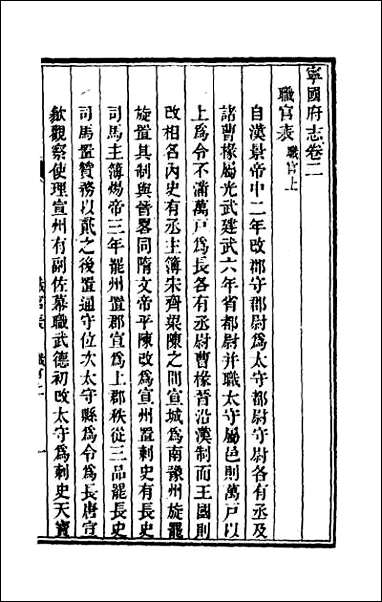 寧國府志卷二
職官表 職官上
自漢景帝中二年改郡守郡尉爲太守都尉守尉各有丞及
諸曹掾屬光武建武六年省都尉并職太守屬邑則萬戸以
上爲令不滿萬戸爲長各有丞尉曹掾晉沿漢制而王國則
改相名內史有丞主簿宋齊梁陳之間宣城爲南豫州旋罷
旋置其制與晉畧同隋文帝平陳改爲宣州置刺史有長史
司馬主簿煬帝三年罷州置郡宣爲上郡秩從三品罷長史
司馬置贊務以貳之後置通守位次太守縣爲令爲長唐宣
歙觀察使理宣州有副佐幕職武德初改太守爲刺史天寶